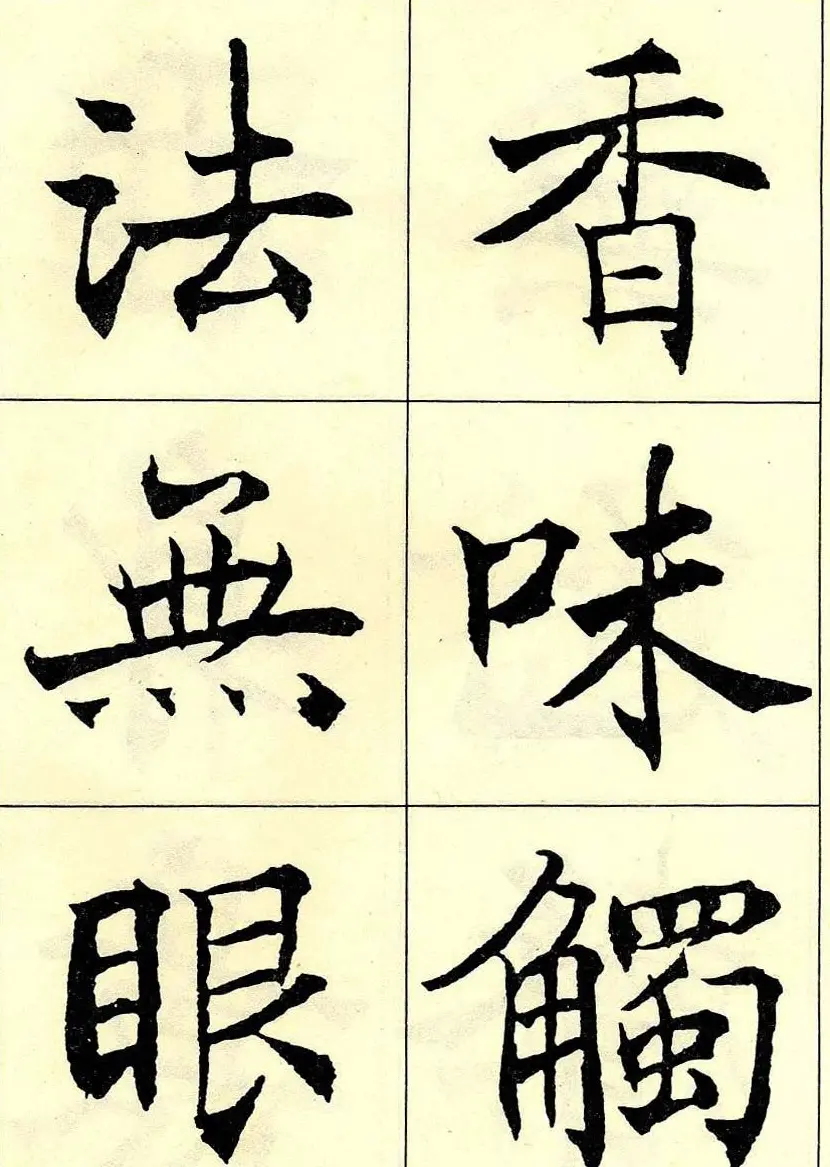 香味觸
法無眼